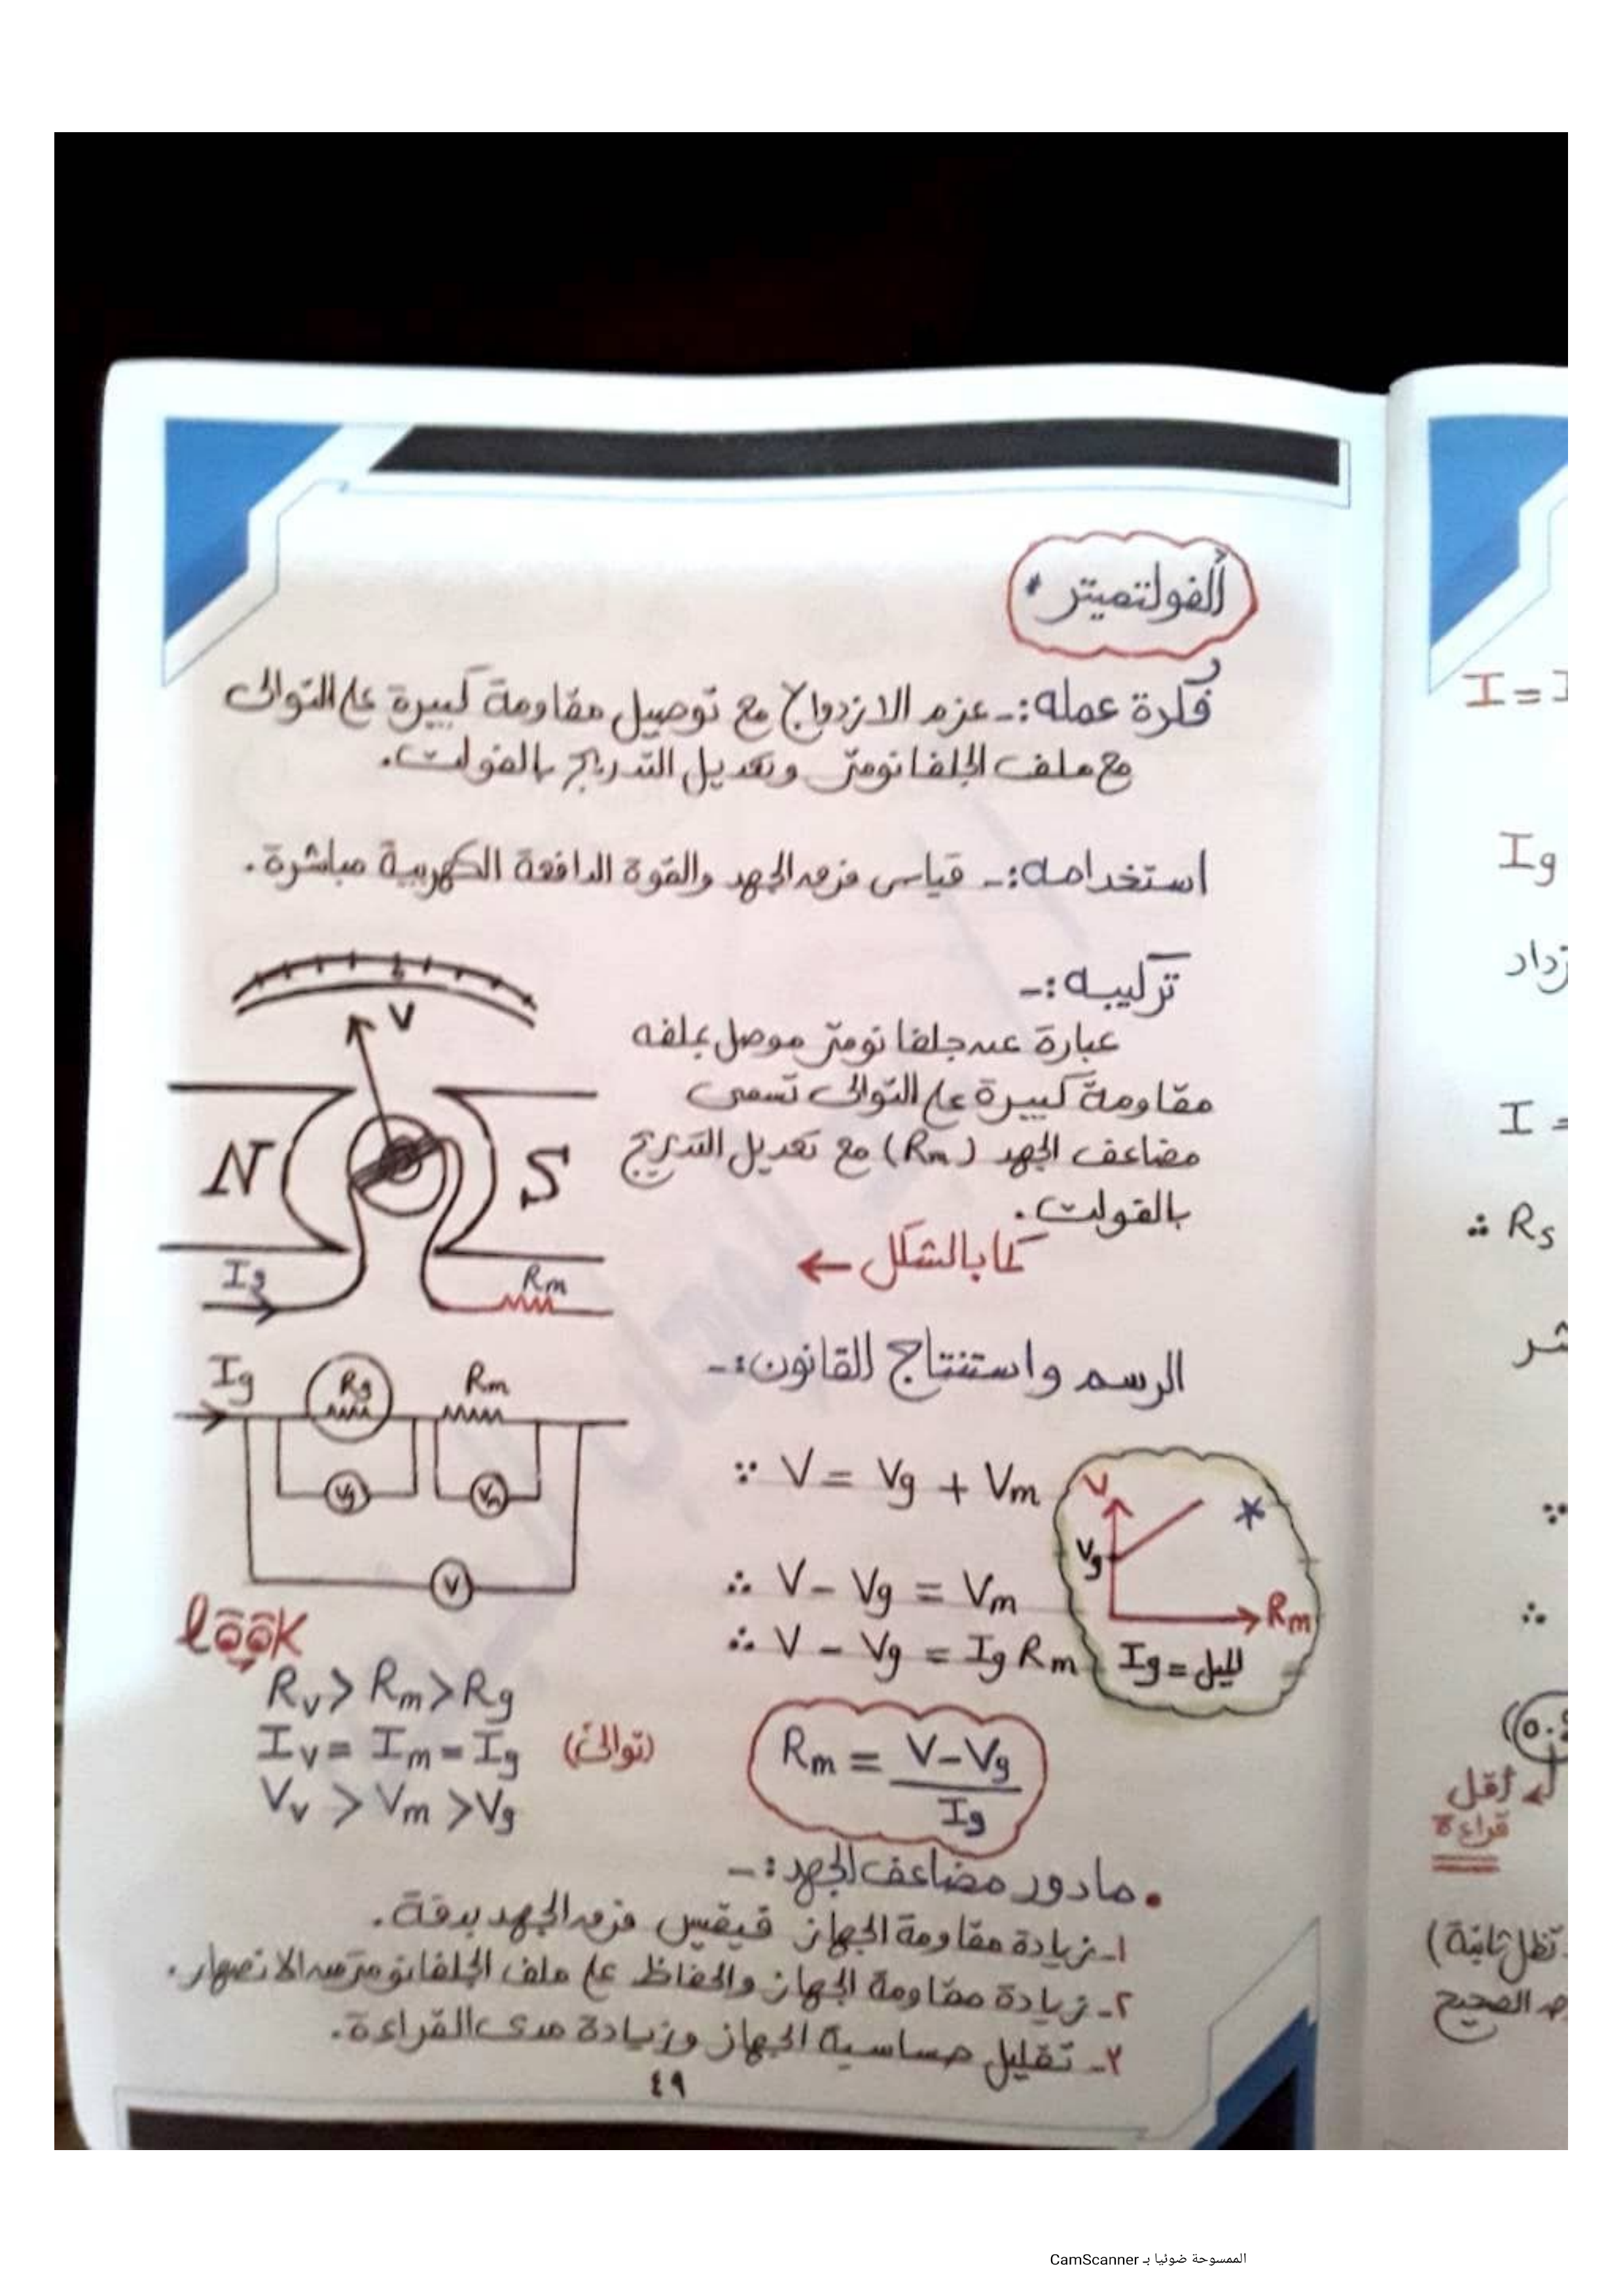 الفولتميتر
فكرة عمله:- عزم الازدواج مع توصيل مقاومة كبيرة على التوالى
مع ملف الجلفانومتر وتعديل التدريج بالفولت.
استخدامه:- قياس فرق الجهد والقوة الدافعة الكهربية مباشرة.
تركيبه:-
عبارة عن جلفانومتر موصل بملفه
مقاومة كبيرة على التوالى تسمى
مضاعف الجهد (Rm) مع تعديل التدريج
بالفولت.
كما بالشكل ←
V
N S
Ig Rm
الرسم واستنتاج القانون:-
Ig Rg Rm
Vg Vm
V
∵ V = Vg + Vm
∴ V - Vg = Vm
∴ V - Vg = Ig Rm
Rm = V-Vg / Ig
V
*
Vg
Rm
الميل = Ig
look
Rv > Rm > Rg
Iv = Im = Ig (توالى)
Vv > Vm > Vg
• ما دور مضاعف الجهد:-
١- زيادة مقاومة الجهاز فيقيس فرق الجهد بدقة.
٢- زيادة مقاومة الجهاز والحفاظ على ملف الجلفانومتر من الانصهار.
٣- تقليل حساسية الجهاز وزيادة مدى القراءة.
٤٩
I =
Ig
زداد
I =
∴ Rs
∵
∴
أقل
قراءة
تظل ثابتة)
الصحيح
الممسوحة ضوئيا بـ CamScanner